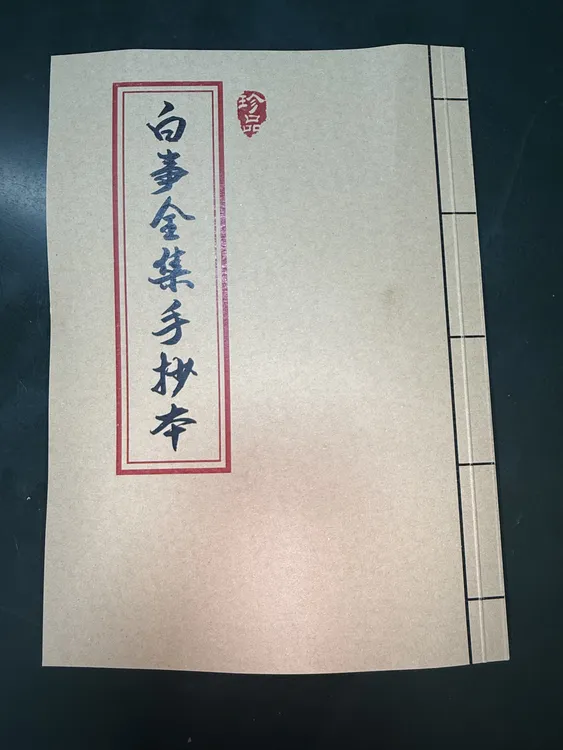 白事全集手抄本
珍品